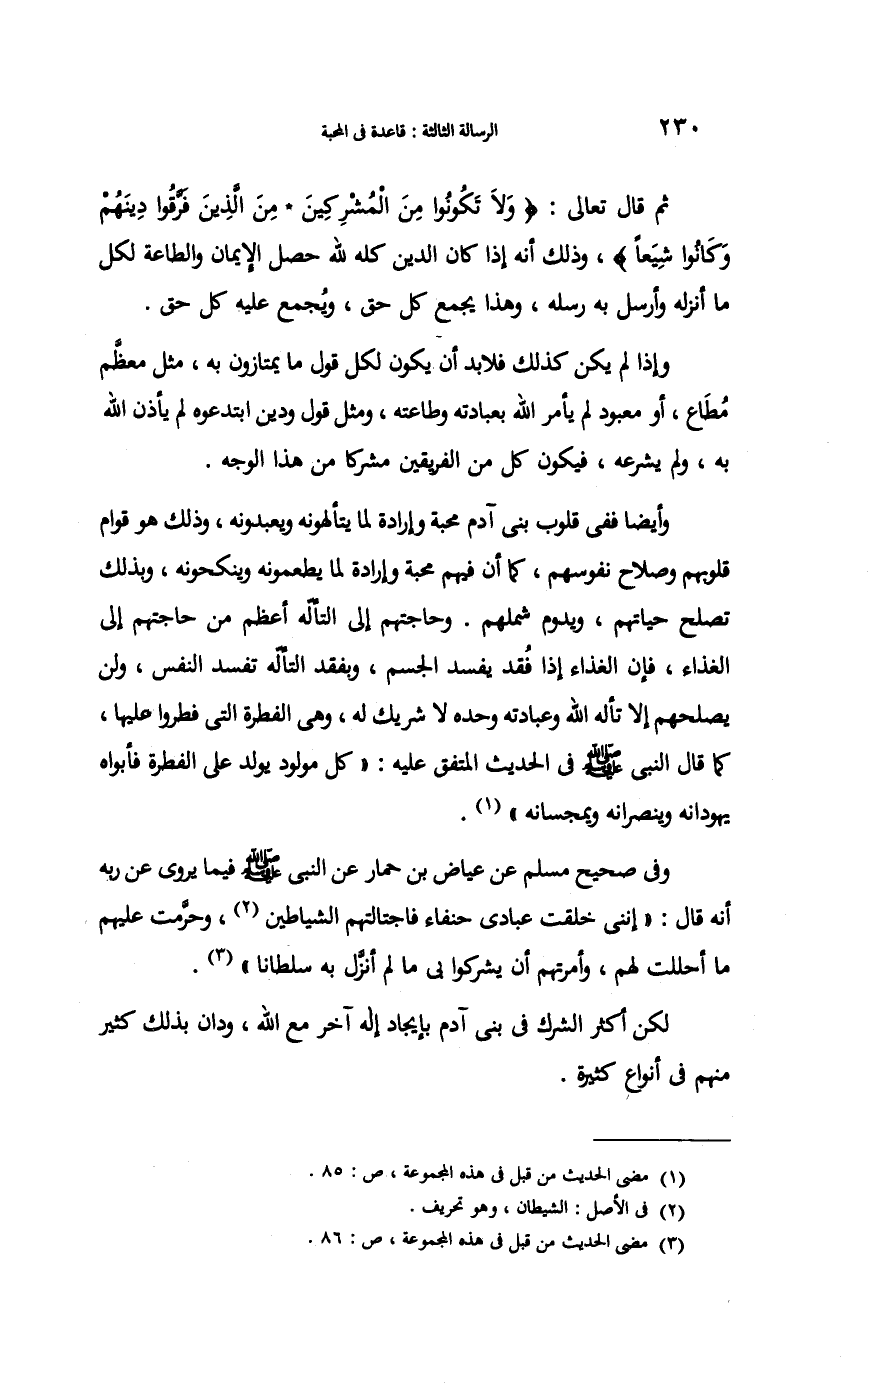 ٢٣٠
الرسالة الثالثة : قاعدة فى المحبة
ثم قال تعالى : ﴿ وَلاَ تَكُونُوا مِنَ الْمُشْرِكِينَ * مِنَ الَّذِينَ فَرَّقُوا دِينَهُمْ
وَكَانُوا شِيَعاً ﴾ ، وذلك أنه إذا كان الدين كله لله حصل الإيمان والطاعة لكل
ما أنزله وأرسل به رسله ، وهذا يجمع كل حق ، ويُجمع عليه كل حق .
وإذا لم يكن كذلك فلابد أن يكون لكل قول ما يمتازون به ، مثل معظَّم
مُطَاع ، أو معبود لم يأمر الله بعبادته وطاعته ، ومثل قول ودين ابتدعوه لم يأذن الله
به ، ولم يشرعه ، فيكون كل من الفريقين مشركا من هذا الوجه .
وأيضا ففى قلوب بنى آدم محبة وإرادة لما يتألهونه ويعبدونه ، وذلك هو قوام
قلوبهم وصلاح نفوسهم ، كما أن فيهم محبة وإرادة لما يطعمونه وينكحونه ، وبذلك
تصلح حياتهم ، ويدوم شملهم . وحاجتهم إلى التألّه أعظم من حاجتهم إلى
الغذاء ، فإن الغذاء إذا فُقد يفسد الجسم ، وبفقد التألّه تفسد النفس ، ولن
يصلحهم إلا تأله الله وعبادته وحده لا شريك له ، وهى الفطرة التى فطروا عليها ،
كما قال النبى ﷺ فى الحديث المتفق عليه : « كل مولود يولد على الفطرة فأبواه
يهودانه وينصرانه ويمجسانه » (١) .
وفى صحيح مسلم عن عياض بن حمار عن النبى ﷺ فيما يروى عن ربه
أنه قال : « إننى خلقت عبادى حنفاء فاجتالتهم الشياطين (٢) ، وحرَّمت عليهم
ما أحللت لهم ، وأمرتهم أن يشركوا بى ما لم أنزَّل به سلطانا » (٣) .
لكن أكثر الشرك فى بنى آدم بإيجاد إله آخر مع الله ، ودان بذلك كثير
منهم فى أنواع كثيرة .
(١) مضى الحديث من قبل فى هذه المجموعة ، ص : ٨٥ .
(٢) فى الأصل : الشيطان ، وهو تحريف .
(٣) مضى الحديث من قبل فى هذه المجموعة ، ص : ٨٦ .